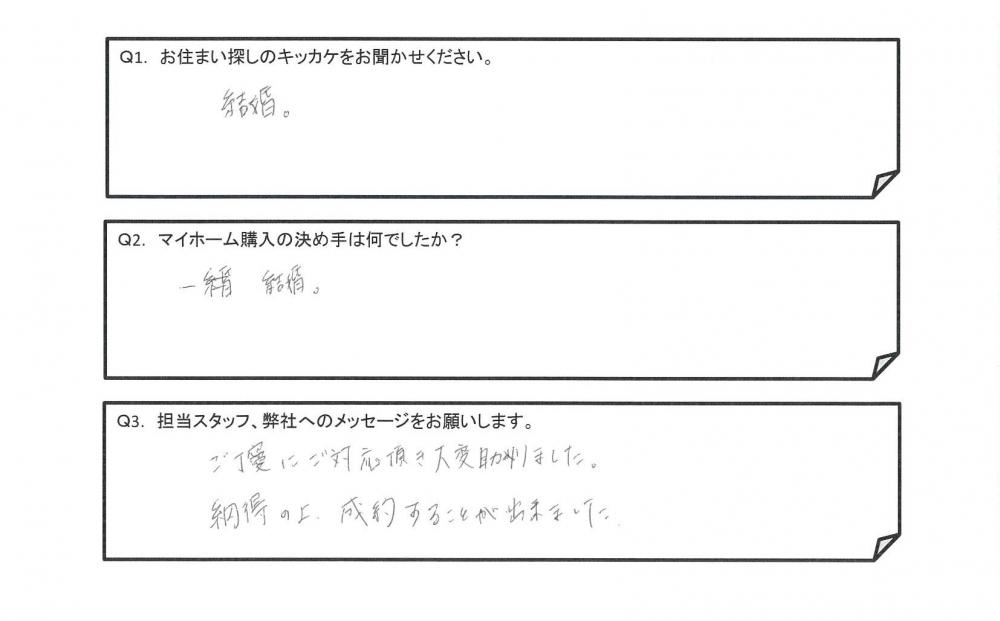 Q1. お住まい探しのキッカケをお聞かせください。
結婚。
Q2. マイホーム購入の決め手は何でしたか？
一緒 結婚。
Q3. 担当スタッフ、弊社へのメッセージをお願いします。
ご丁寧にご対応頂き大変助かりました。
納得の上、成約することが出来ました。